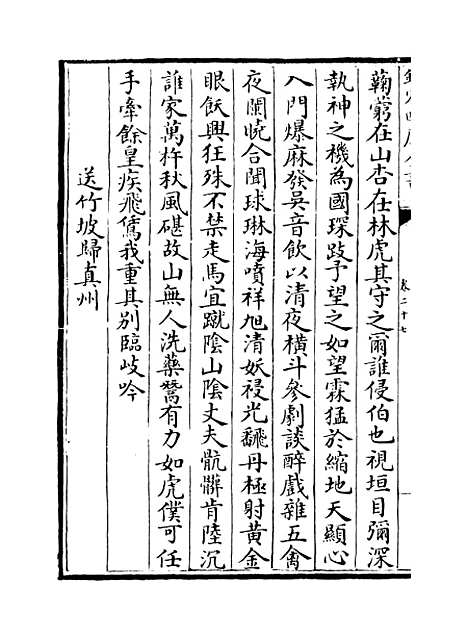 欽定四庫全書
卷二十七
鞠藭在山杏在林虎其守之爾誰侵伯也視垣目彌深
執神之機為國琛跂予望之如望霖猛於縮地天顯心
入門爆麻發吳音飲以清夜横斗參劇談醉戲雜五禽
夜闌曉合閶球琳海噴祥旭清妖祲光飜丹極射黄金
眼飫興狂殊不禁走馬宜蹴陰山陰丈夫骯髒肯陸沉
誰家萬杵秋風碪故山無人洗藥鬵有力如虎僕可任
手牽餘皇疾飛鶱我重其别臨岐吟
送竹坡歸真州